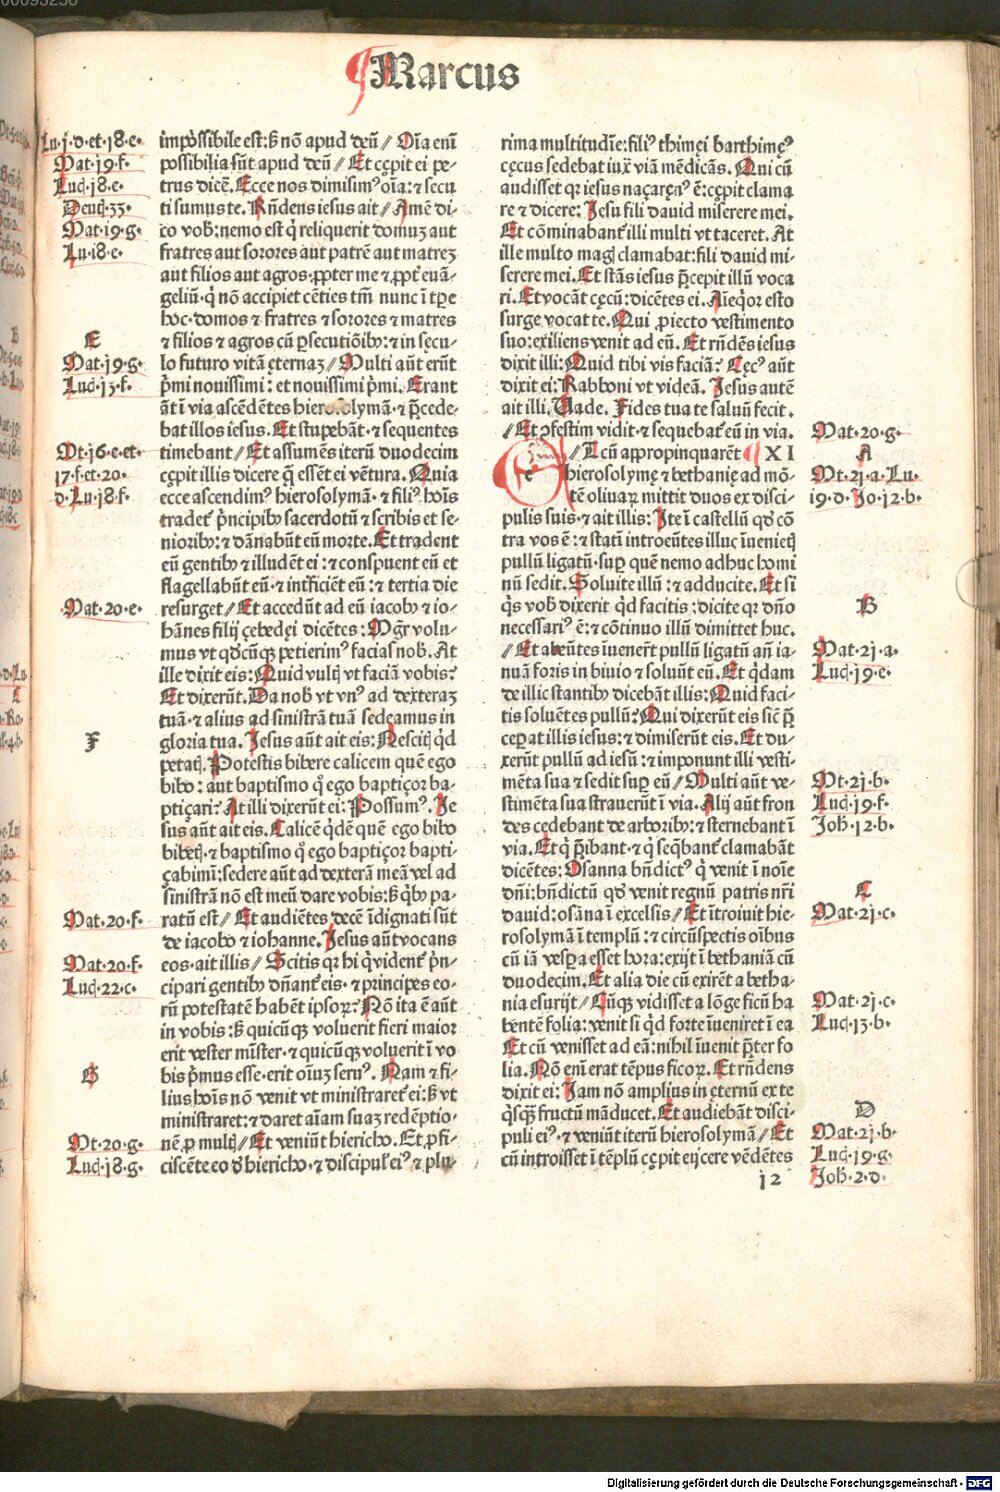 Marcus
Lu·j·d·et·18·e·
Mat·19·f·
Luc̃·18·e·
Deut̃·33·
Mat·19·g·
Lu·18·e·
E
Mat·19·g·
Luc̃·13·f·
Mt·16·e·et·
17·f·et·20·
d·Lu·18·f·
Mat·20·e·
F
Mat·20·f·
Mat·20·f·
Luc̃·22·c·
G
Mt·20·g·
Luc̃·18·g·
impossibile est: sꝫ nō apud deū / Oīa enī
possibilia sūt apud deū / Et cępit ei pe-
trus dicē̃. Ecce nos dimisimꝰ oīa: ⁊ secu
ti sumus te. Rn̄dens iesus ait / Amē di-
co vob: nemo est q̇ reliquerit domuꝫ aut
fratres aut sorores aut patrē aut matreꝫ
aut filios aut agros·ꝓpter me ⁊ ꝓpt̃ euā-
geliū·q̇ nō accipiet cēties tm̄ nunc ī tꝑe
hoc·domos ⁊ fratres ⁊ sorores ⁊ matres
⁊ filios ⁊ agros cū ꝑsecutiōibꝫ: ⁊ in sęcu-
lo futuro vitā ęternaꝫ / Multi aūt erūt
p̄mi nouissimi: et nouissimi p̄mi. Erant
āt ī via ascēdētes hierosolymā·⁊ p̄cede-
bat illos iesus. Et stupebāt·⁊ sequentes
timebant / Et assumēs iterū duodecim
cępit illis dicere q̨ essēt ei vētura. Quia
ecce ascendimꝰ hierosolymā·⁊ filiꝰ hoīs
tradet̃ p̄ncipibꝫ sacerdotū ⁊ scribis et se-
nioribꝫ: ⁊ dānabūt eū morte. Et tradent
eū gentibꝫ ⁊ illudēt ei: ⁊ conspuent eū et
flagellabūt eū·⁊ int̃ficiēt eū: ⁊ tertia die
resurget / Et accedūt ad eū iacobꝫ ⁊ io-
hānes filij ęebedęi dicētes: Mgr̄ volu-
mus vt qd̄cūqꝫ petierimꝰ facias nob. At
ille dixit eis: Quid vultꝭ vt faciā vobis?
Et dixerūt. Da nob vt vnꝰ ad dexteraꝫ
tuā·⁊ alius ad sinistrā tuā sedeamus in
gloria tua. Jesus aūt ait eis: Nescitꝭ qd̄
petatꝭ. Potestis bibere calicem quē ego
bibo: aut baptismo q̇ ego baptiçor ba-
ptiçari? At illi dixerūt ei: Possumꝰ. Je
sus aūt ait eis. Calicē q̇dē quē ego bibo
bibetꝭ·⁊ baptismo q̇ ego baptiçor bapti-
çabimī: sedere aūt ad dexterā meā vel ad
sinistrā nō est meū dare vobis: sꝫ q̇bꝫ pa-
ratū est / Et audiētes decē īdignati sūt
de iacobo ⁊ iohanne. Jesus aūt vocans
eos·ait illis / Scitis qꝛ hi q̇ vident̃ p̄n-
cipari gentibꝫ dn̄ant̃ eis·⁊ principes eo-
rū potestatē habēt ipsoꝝ? Nō ita ē aūt
in vobis: sꝫ quicūqꝫ voluerit fieri maior
erit vester mīster·⁊ quicūqꝫ voluerit ī vo
bis p̄mus esse·erit oīuꝫ seruꝰ. Nam ⁊ fi-
lius hoīs nō venit vt ministraret̃ ei: sꝫ vt
ministraret: ⁊ daret aīam suaꝫ redēptio-
nē ꝓ multꝭ / Et veniūt hiericho. Et ꝓfi-
ciscēte eo d̄ hiericho·⁊ discipul̃ eiꝰ ⁊ plu-
rima multitudīe: filiꝰ thimęi barthimęꝰ
cęcus sedebat iux̃ viā mēdicās. Qui cū
audisset qꝛ iesus naçaręnꝰ ē: cępit clama
re ⁊ dicere: Jesu fili dauid miserere mei.
Et cōminabant̃ illi multi vt taceret. At
ille multo magꝭ clamabat: fili dauid mi-
serere mei. Et stās iesus p̄cepit illū voca
ri. Et vocāt cęcū: dicētes ei. Aīeq̇or esto
surge vocat te. Qui ꝓiecto vestimento
suo: exiliens venit ad eū. Et rn̄dēs iesus
dixit illi: Quid tibi vis faciā? Cęcꝰ aūt
dixit ei: Rabboni vt videā. Jesus autē
ait illi. Uade. Fides tua te saluū fecit.
/ Et ꝯfestim vidit·⁊ sequebat̃ eū in via.
/ T cū appropinquarēt XI
hierosolymę ⁊ bethanię ad mō-
tē oliuaꝝ mittit duos ex disci-
pulis suis·⁊ ait illis: Ite ī castellū qd̄ cō
tra vos ē: ⁊ statī introeūtes illuc īuenietꝭ
pullū ligatū·suꝑ quē nemo adhuc homi
nū sedit. Soluite illū: ⁊ adducite. Et si
q̇s vob dixerit qd̄ facitis: dicite qꝛ dn̄o
necessariꝰ ē: ⁊ cōtinuo illū dimittet huc.
/ Et abeūtes īuenert̃ pullū ligatū an̄ ia-
nuā foris in biuio ⁊ soluūt eū. Et q̇dam
de illic stantibꝫ dicebāt illis: Quid faci-
tis soluētes pullū? Qui dixerūt eis sic̄ p̄
ceꝑat illis iesus: ⁊ dimiserūt eis. Et du-
xerūt pullū ad iesū: ⁊ imponunt illi vesti-
mēta sua ⁊ sedit suꝑ eū / Multi aūt ve-
stimēta sua strauerūt ī via. Alij aūt fron
des cedebant de arboribꝫ: ⁊ sternebant ī
via. Et q̇ p̄ibant·⁊ q̇ seq̄bant̃ clamabāt
dicētes: Osanna bn̄dictꝰ q̇ venit ī noīe
dn̄i: bn̄dictū qd̄ venit regnū patris nr̄i
dauid: osāna ī excelsis / Et ītroiuit hie-
rosolymā ī templū: ⁊ circūspectis oībus
cū iā vesꝑa esset hora: exijt ī bethaniā cū
duodecim. Et alia die cū exirēt a betha-
nia esurijt / Cūqꝫ vidisset a lōge ficū ha
bentē folia: venit si qd̄ forte īueniret ī ea
Et cū venisset ad eā: nihil īuenit p̄ter fo
lia. Nō enī erat tēpus ficoꝝ. Et rn̄dens
dixit ei: Jam nō amplius in ęternū ex te
q̇sq̨ fructū māducet. Et audiebāt disci-
puli eiꝰ·⁊ veniūt iterū hierosolymā / Et
cū introisset ī tēplū cępit eijcere vēdētes
j2
Mat·20·g·
A
Mt·21·a·Lu·
19·d·Jo·12·b·
B
Mat·21·a·
Luc̃·19·e·
Mt·21·b·
Luc̃·19·f·
Joh·12·b·
C
Mat·21·c·
Mat·21·c·
Luc̃·13·b·
D
Mat·21·b·
Luc̃·19·g·
Joh·2·d·
Digitalisierung gefördert durch die Deutsche Forschungsgemeinschaft · DFG